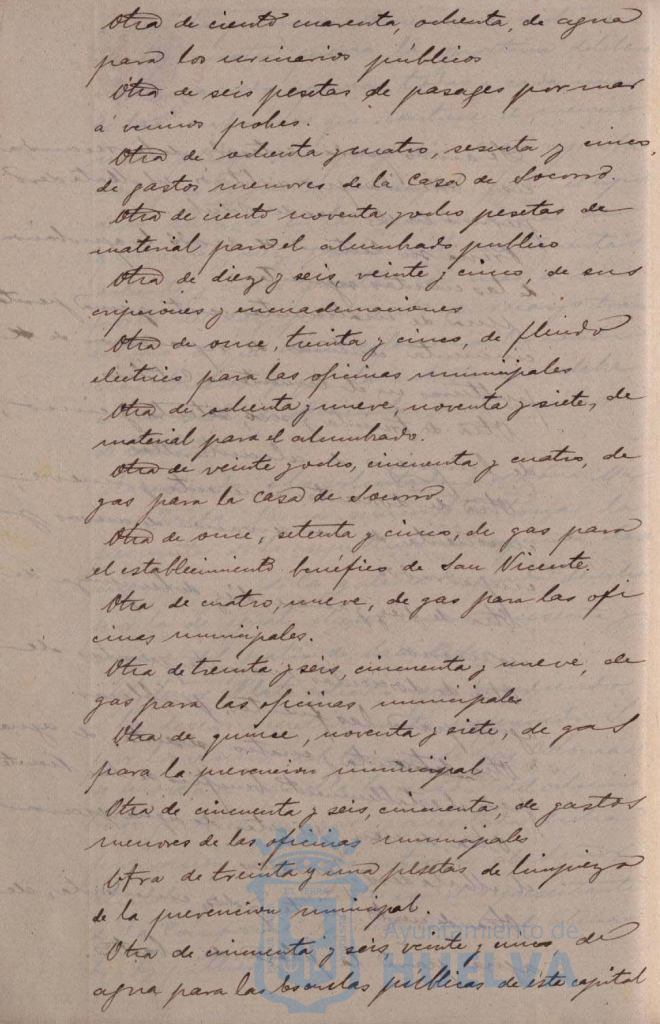 Otra de ciento cuarenta, ochenta, de agua
para los urinarios públicos
Otra de seis pesetas de pasages por mar
á vecinos pobres.
Otra de ochenta y cuatro, sesenta y cinco,
de gastos menores de la Casa de Socorro.
Otra de ciento noventa y ocho pesetas de
material para el alumbrado publico
Otra de diez y seis, veinte y cinco, de sus
cripciones y encuadernaciones
Otra de once, treinta y cinco, de fluido
electrico para las oficinas municipales
Otra de ochenta y nueve, noventa y siete, de
material para el alumbrado.
Otra de veinte y ocho, cincuenta y cuatro, de
gas para la Casa de Socorro.
Otra de once, setenta y cinco, de gas para
el establecimiento benéfico de San Vicente.
Otra de cuatro, nueve, de gas para las ofi
cinas municipales.
Otra de treinta y seis, cincuenta y nueve, de
gas para las oficinas municipales
Otra de quince, noventa y siete, de gas
para la prevencion municipal
Otra de cincuenta y seis, cincuenta, de gastos
menores de las oficinas municipales
Otra de treinta y una pesetas de limpieza
de la prevencion municipal.
Otra de cincuenta y seis, veinte y cinco de
agua para las Escuelas publicas de esta capital
Ayuntamiento de
HUELVA